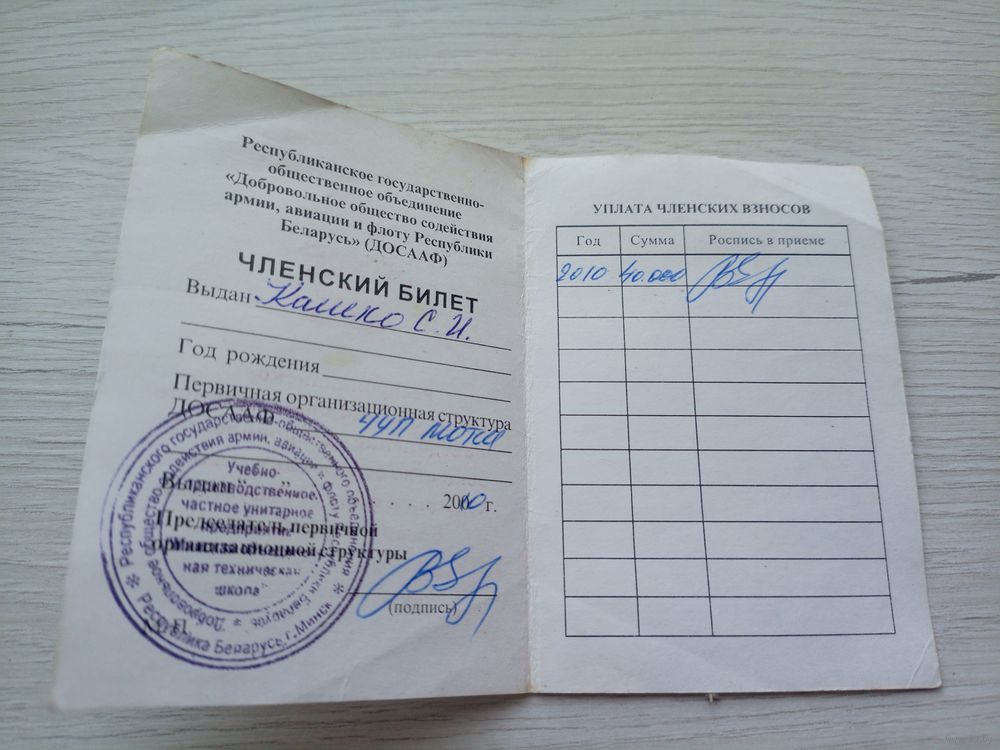 Республиканское государственно-
общественное объединение
«Добровольное общество содействия
армии, авиации и флоту Республики
Беларусь» (ДОСААФ)
ЧЛЕНСКИЙ БИЛЕТ
Выдан Кашко С. И.
Год рождения
Первичная организационная структура
ДОСААФ ЧУП МОТШ
Выдан " " . . . . 2010 г.
Председатель первичной
организационной структуры
(подпись)
Учебно-
производственное
частное унитарное
предприятие
ная техническая
школа
Республиканского государственно-общественного объединения
Добровольное общество содействия армии, авиации и флоту Республики Беларусь
Республика Беларусь, г. Минск
УПЛАТА ЧЛЕНСКИХ ВЗНОСОВ
Год Сумма Роспись в приеме
2010 40.000